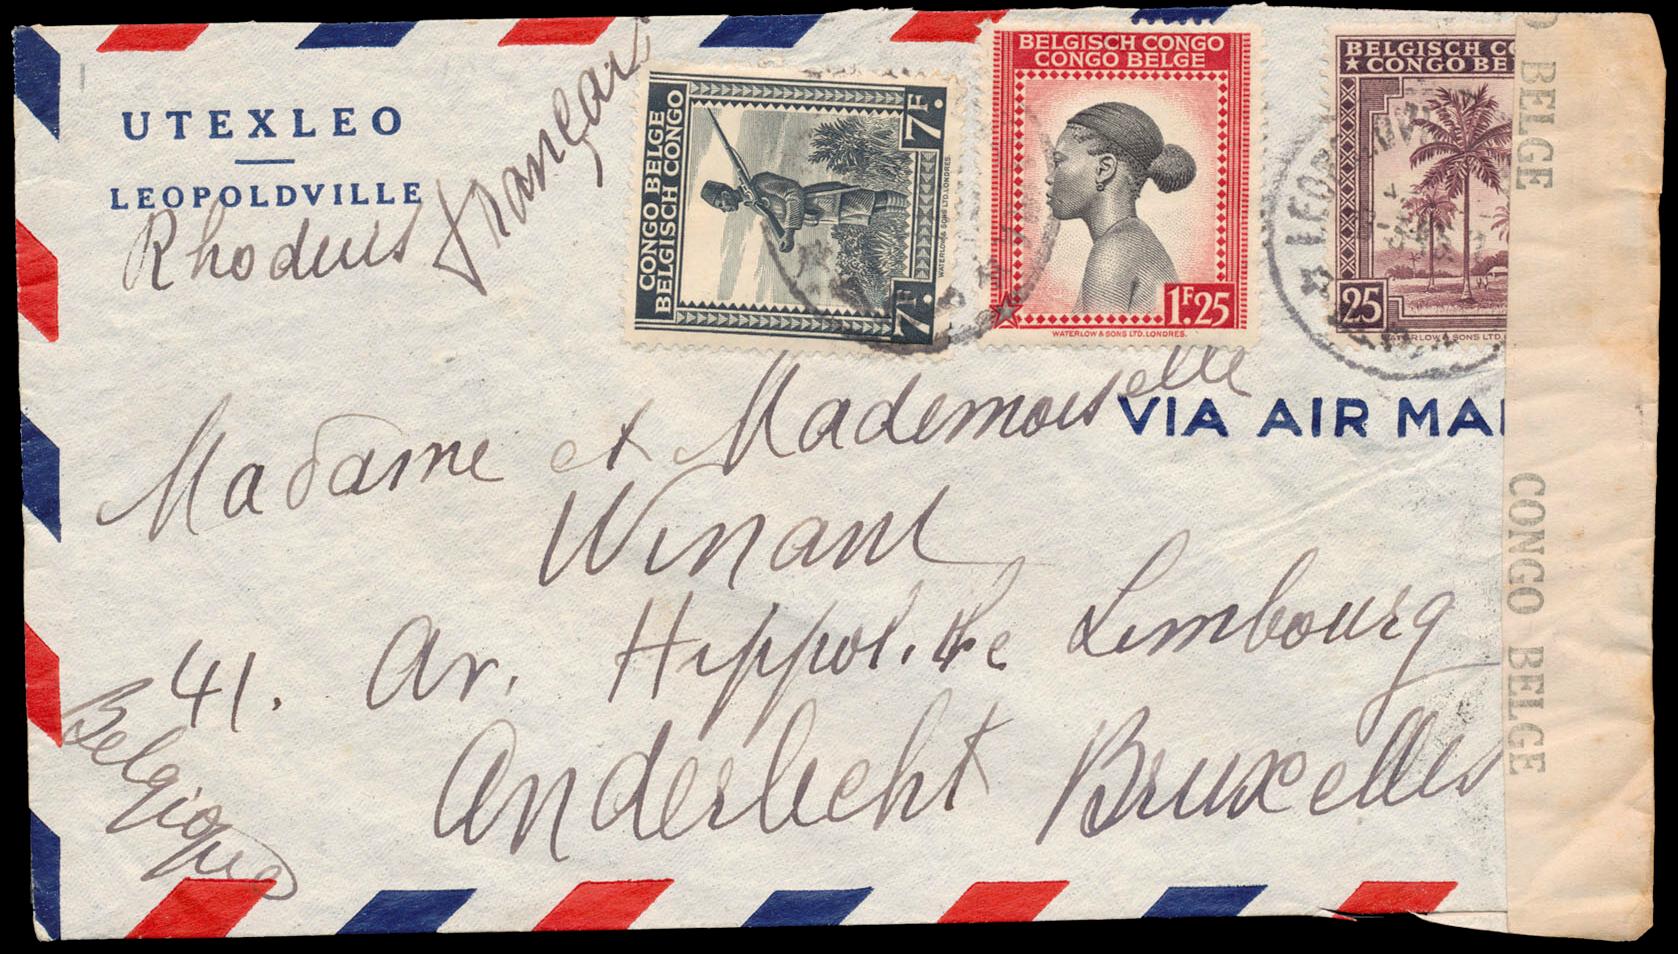 UTEXLEO
LEOPOLDVILLE
français
CONGO BELGE
BELGISCH CONGO
7F.
7F.
WATERLOW & SONS LTD. LONDRES.
BELGISCH CONGO
CONGO BELGE
1F.25
WATERLOW & SONS LTD. LONDRES.
BELGISCH CO
CONGO BE
25
WATERLOW & SONS LTD.
LEOP
VIA AIR MAI
Madame et Mademoiselle
Winant
41. Av. Hippolithe Limbourg
Anderlecht Bruxelles
Belgique
O BELGE
CONGO BELGE